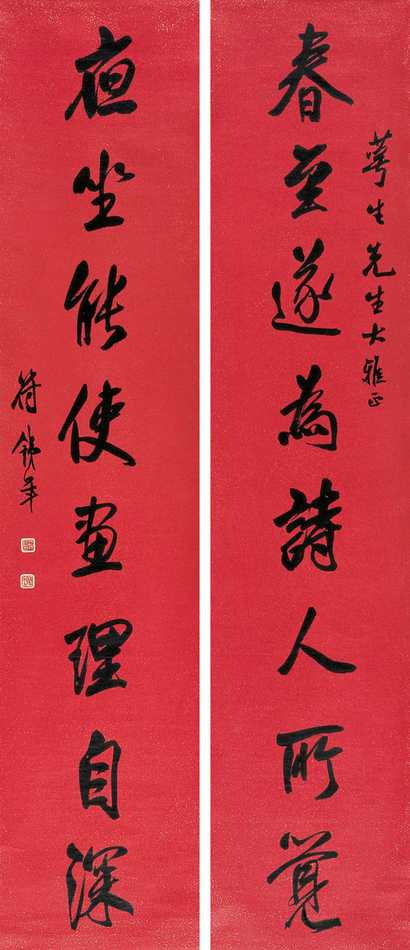 萼生先生大雅正
春至遂為詩人所覺
夜坐能使畫理自深
符鐵年